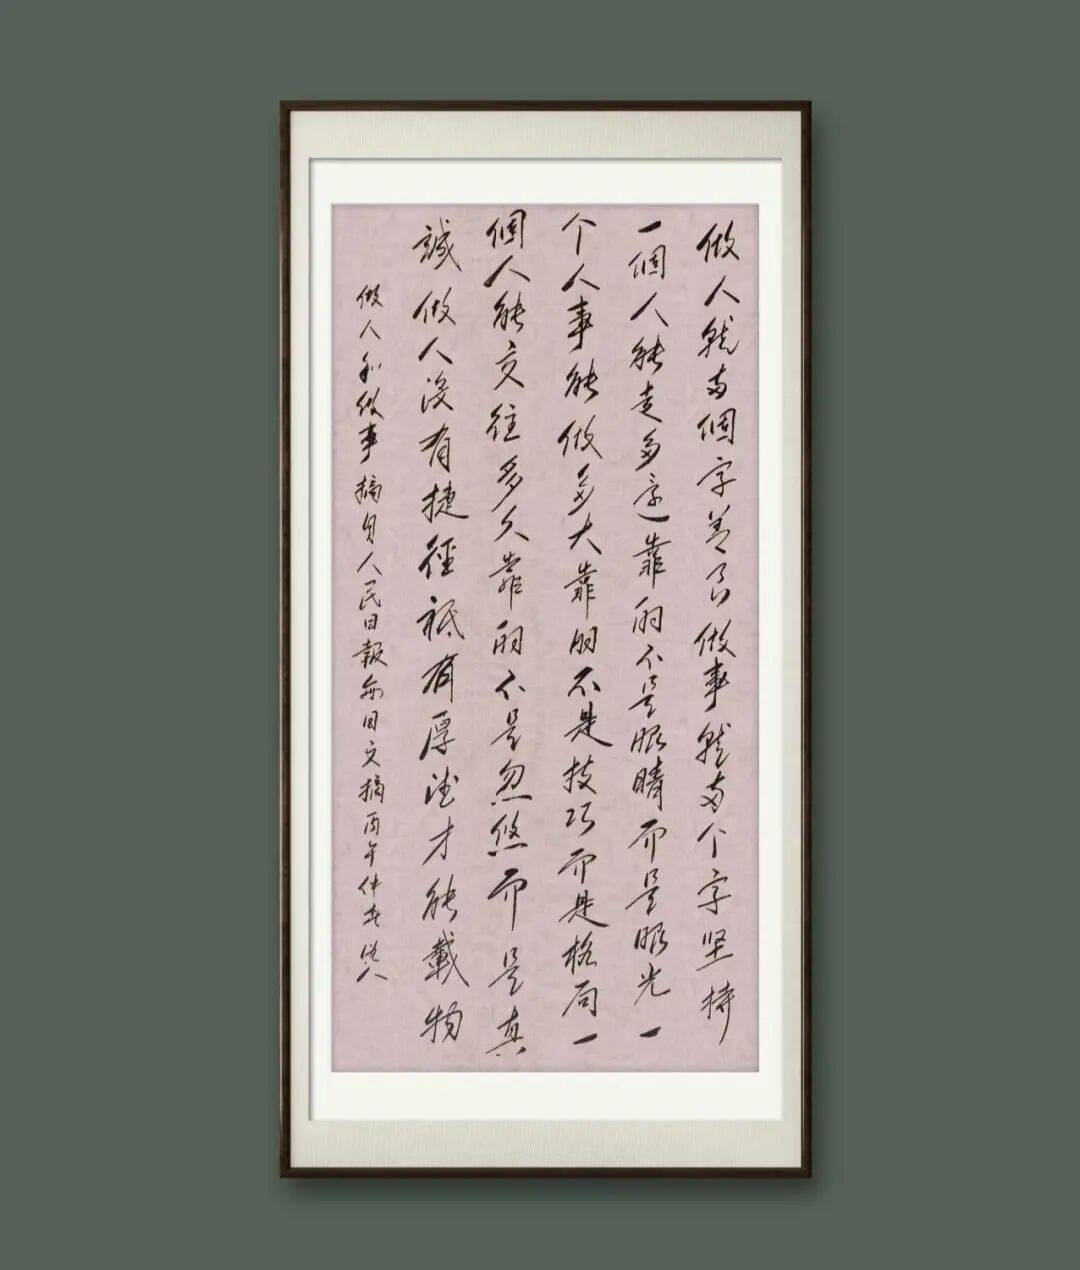 做人就两個字善良做事就两个字坚持
一個人能走多远靠的不是眼睛而是眼光一
个人事能做多大靠的不是技巧而是格局一
個人能交往多久靠的不是忽悠而是真
誠做人没有捷徑祗有厚德才能載物
做人和做事摘自人民日報每日文摘丙午仲春